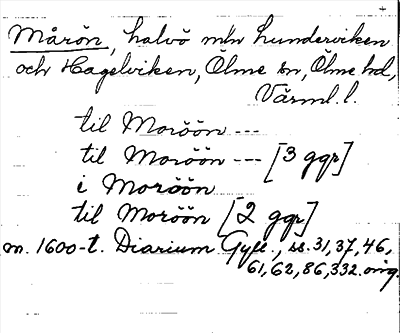 Mårön, halvö mln Hunderviken
och Hagelviken, Ölme sn, Ölme hd,
Värml. l.
til Moröön ---
til Moröön --- [3 ggr]
i Moröön
til Moröön [2 ggr]
m. 1600-t. Diarium Gyll., ss. 31, 37, 46,
61, 62, 86, 332. orig.